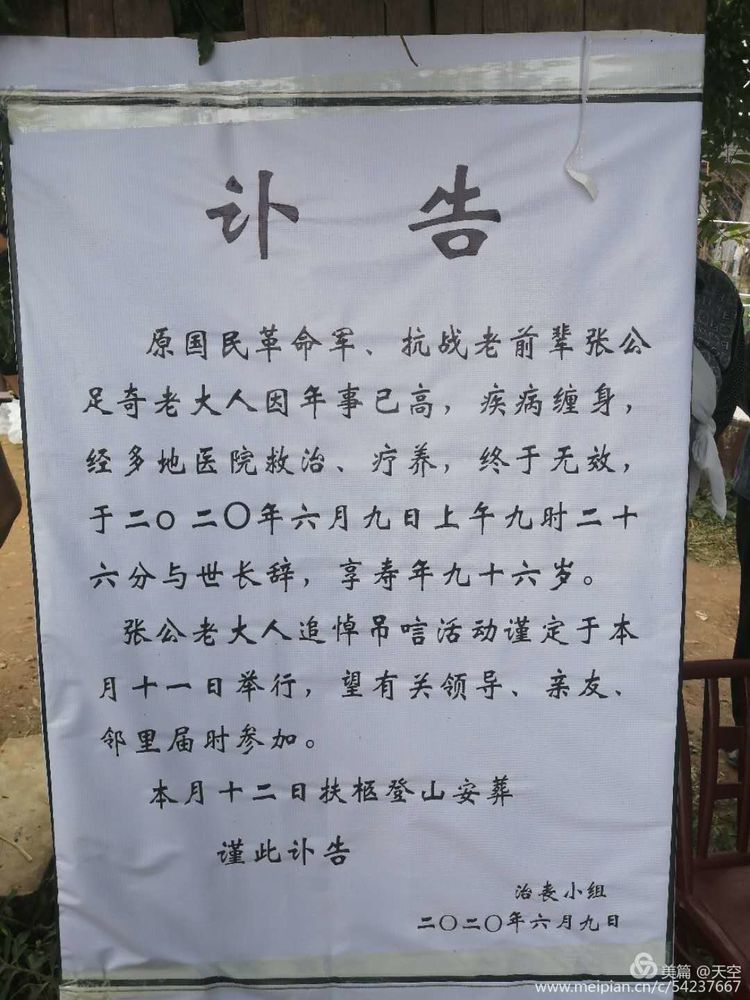 讣告
原国民革命军、抗战老前辈张公
足奇老大人因年事已高，疾病缠身，
经多地医院救治、疗养，终于无效，
于二〇二〇年六月九日上午九时二十
六分与世长辞，享寿年九十六岁。
张公老大人追悼吊唁活动谨定于本
月十一日举行，望有关领导、亲友、
邻里届时参加。
本月十二日扶柩登山安葬
谨此讣告
治丧小组
二〇二〇年六月九日
美篇 @天空
www.meipian.cn/c/54237667